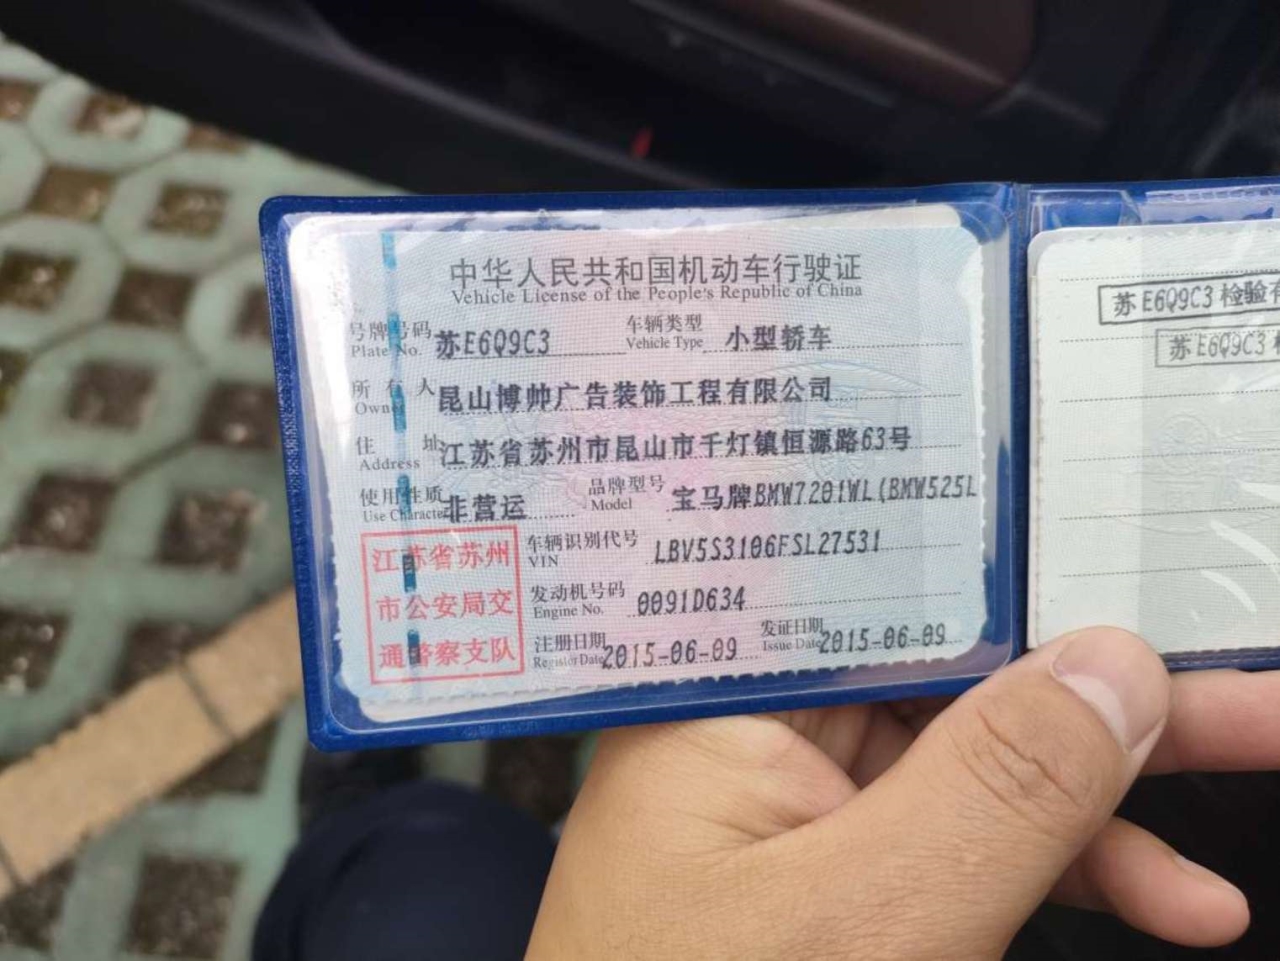 中华人民共和国机动车行驶证
Vehicle License of the People's Republic of China
号牌号码 苏E6Q9C3 车辆类型 小型轿车
Plate No. Vehicle Type
所有人 昆山博帅广告装饰工程有限公司
Owner
住址 江苏省苏州市昆山市千灯镇恒源路63号
Address
使用性质 非营运 品牌型号 宝马牌BMW7201WL(BMW525L
Use Character Model
江苏省苏州
市公安局交
通警察支队
车辆识别代号 LBV5S3106FSL27531
VIN
发动机号码 0091D634
Engine No.
注册日期 2015-06-09 发证日期 2015-06-09
Register Date Issue Date
苏E6Q9C3 检验有
苏E6Q9C3